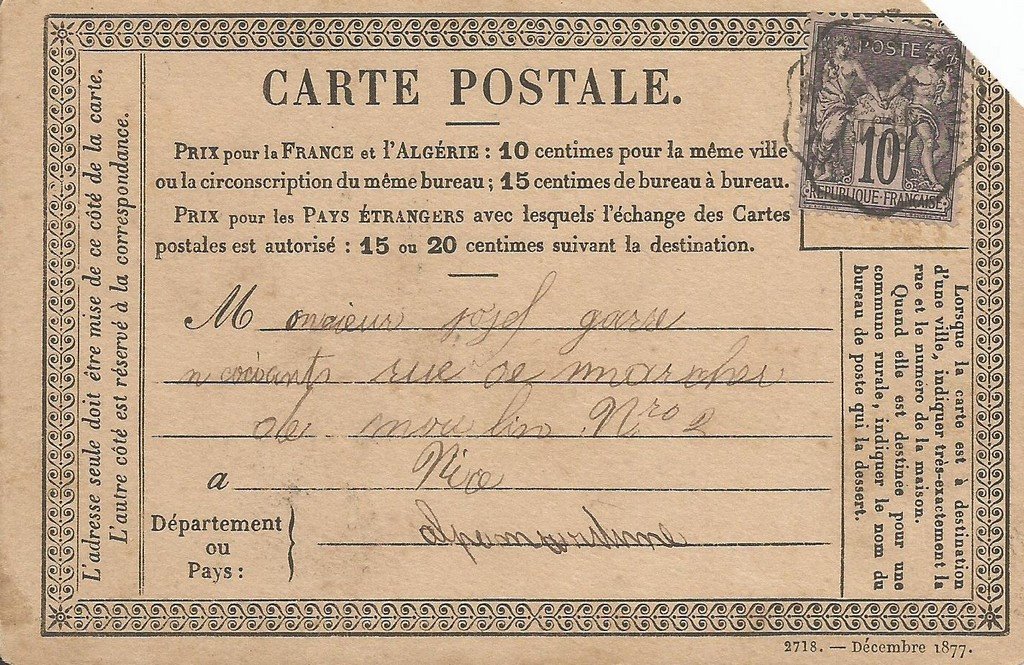 CARTE POSTALE.
POSTE
10
REPUBLIQUE FRANÇAISE
PRIX pour la FRANCE et l'ALGÉRIE : 10 centimes pour la même ville
ou la circonscription du même bureau ; 15 centimes de bureau à bureau.
PRIX pour les PAYS ÉTRANGERS avec lesquels l'échange des Cartes
postales est autorisé : 15 ou 20 centimes suivant la destination.
L'adresse seule doit être mise de ce côté de la carte.
L'autre côté est réservé à la correspondance.
M onsieur josef garre
rue de marcher
de moulin Nro 2
a Nice
Département
ou
Pays :
alpemaritime
Lorsque la carte est à destination
d'une ville, indiquer très-exactement la
rue et le numero de la maison.
Quand elle est destinée pour une
commune rurale, indiquer le nom du
bureau de poste qui la dessert.
2718. — Décembre 1877.